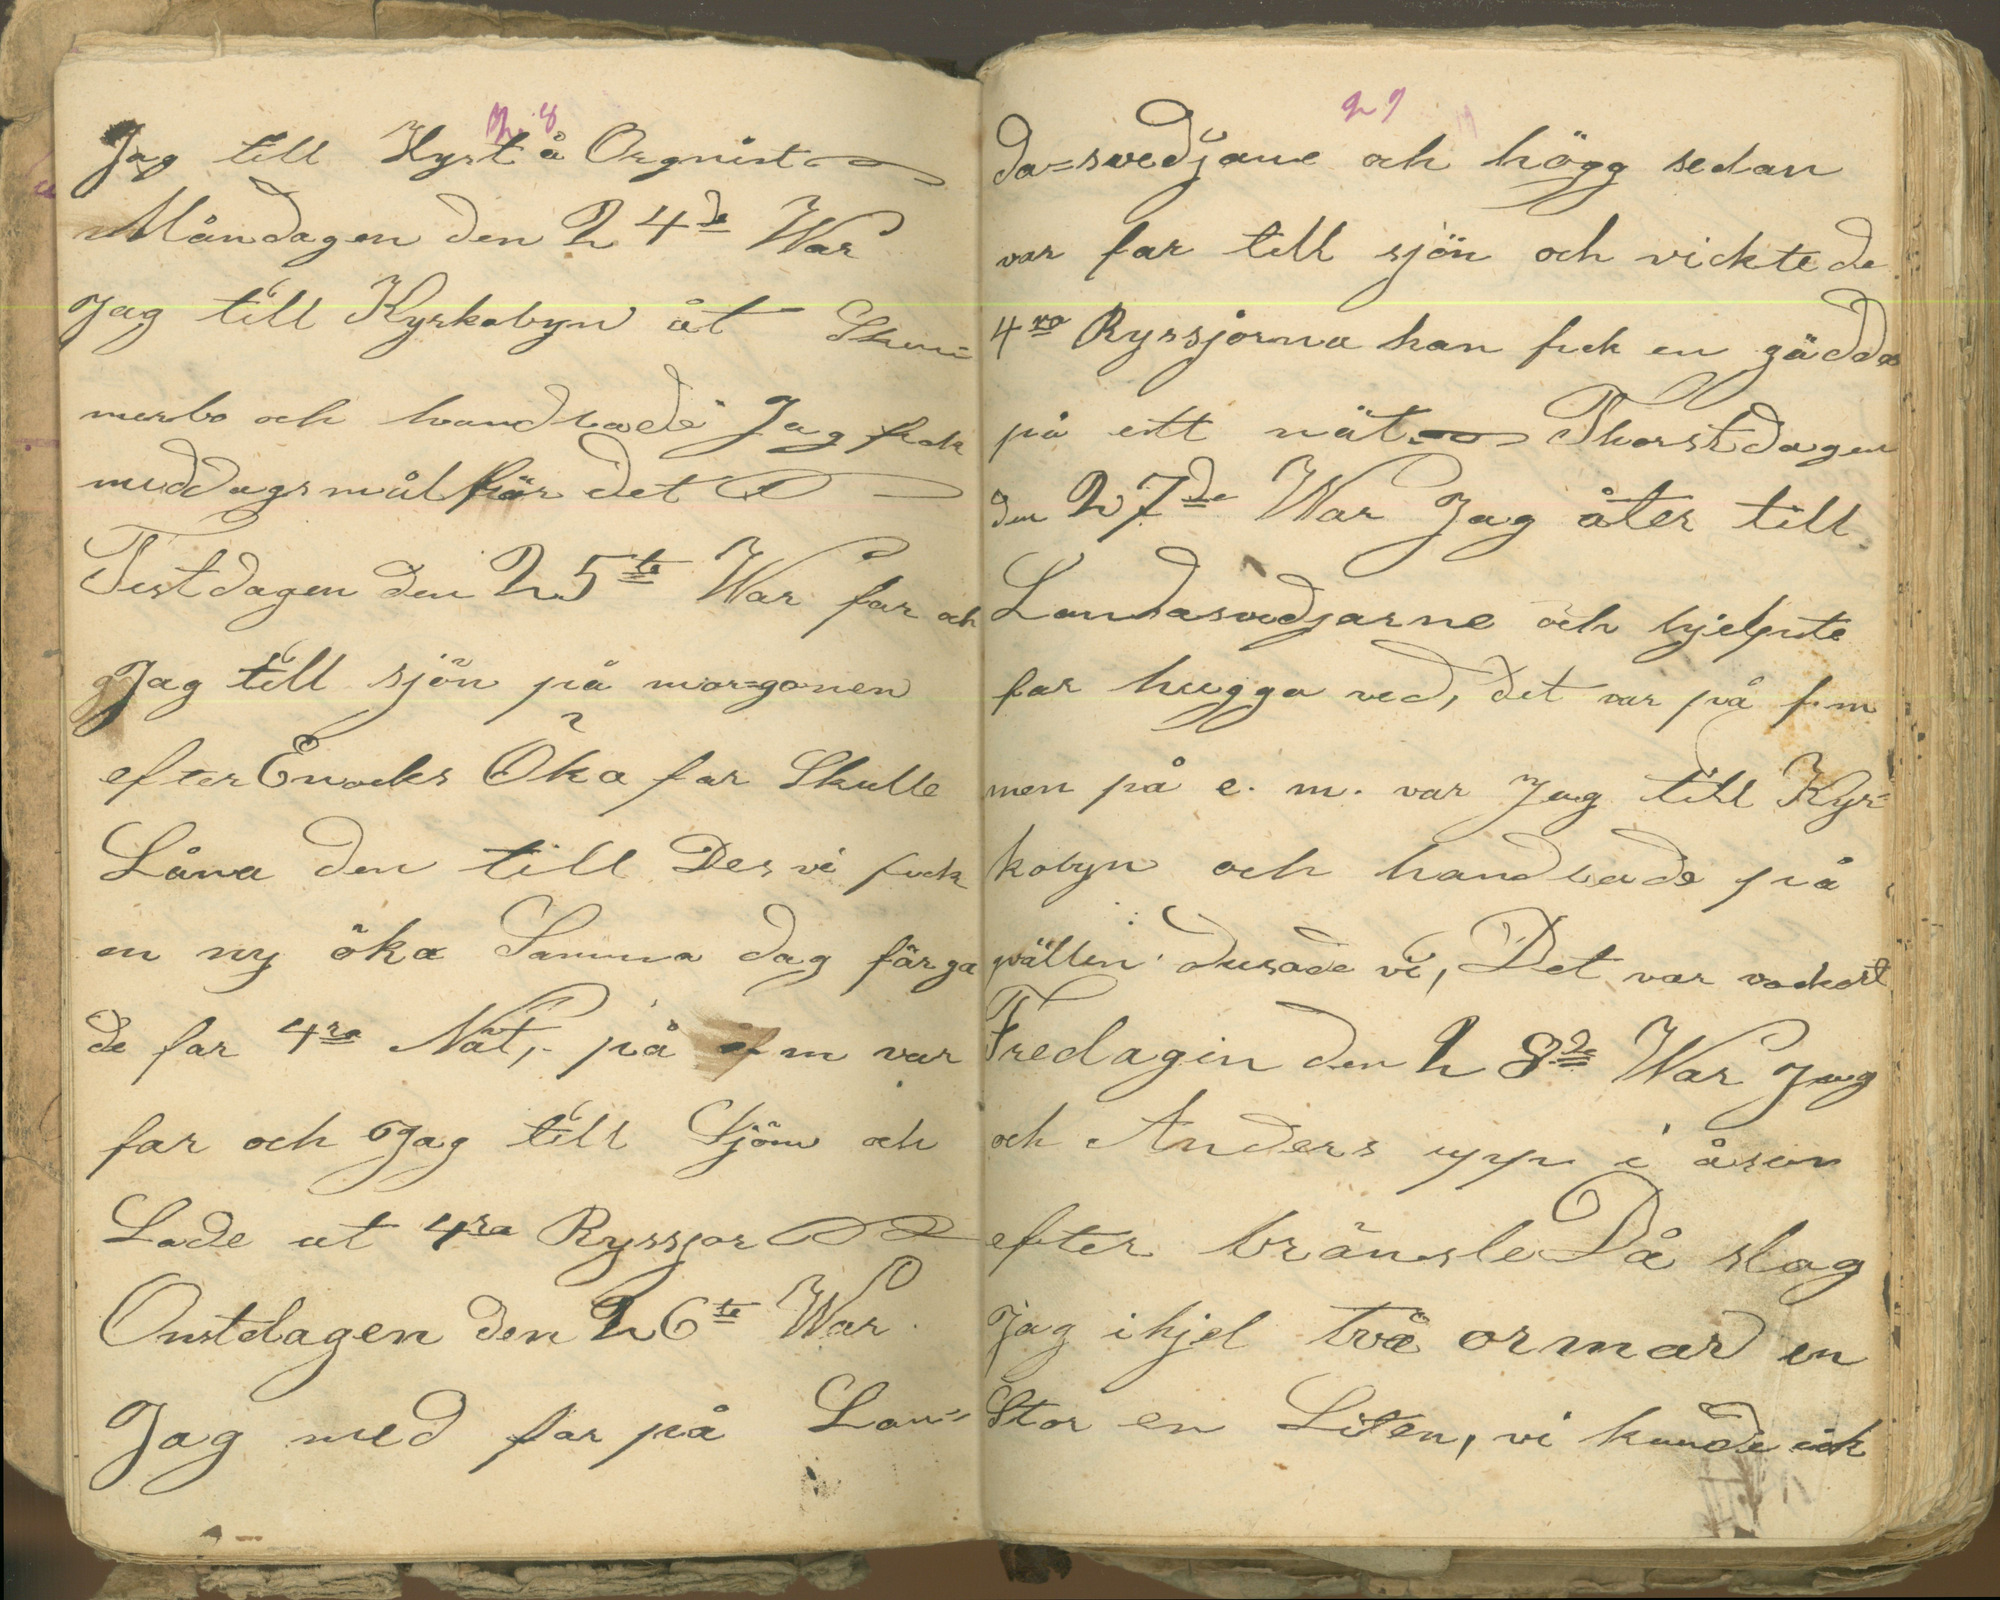 28
Jag till Hyrt å Orgnist
Måndagen den 24de War
Jag till Kyrkobyn åt Skom=
merbo och handlade Jag fick
middagsmål för det
Tistdagen den 25te War far och
Jag till sjön på mor=gonen
efter Enocks Öka far Skulle
Låna den till Des vi fick
en ny öka Samma dag färga
de far 4ra Nät, på e m var
far och Jag till Sjön och
Lade ut 4ra Ryssjor
Onstdagen den 26te War
Jag med far på Lan=
29
da=svedjane och högg sedan
var far till sjön och vicktede
4ra Ryssjorna han fick en gädda
på ett nät Thorstdagen
den 27de War Jag åter till
Landasvedjarne och hjelpte
far hugga ved, det var på f.m
men på e. m. var Jag till Kyr=
kobyn och handlade på
qvällen dusade vi, Det var vackert
Fredagin den 28de War Jag
och Anders upp i åsen
efter bränsle Då slog
Jag ihjel två ormar en
Stor en Liten, vi kunde ick